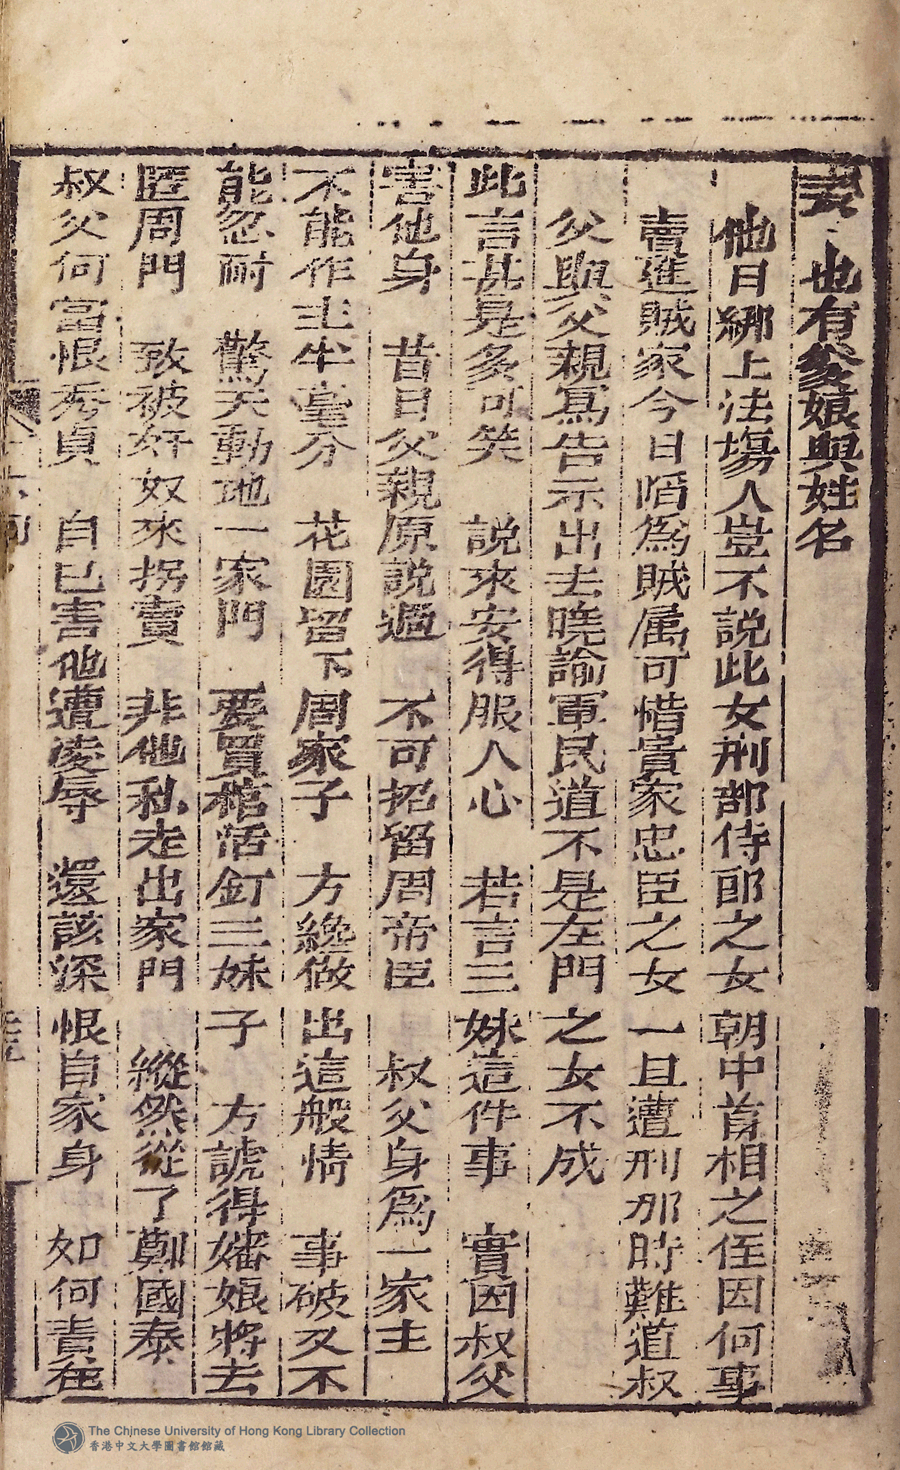 也有爹娘與姓名
他日綁上法塲人豈不説此女刑部侍郎之女朝中首相之侄因何事
賣進賊家今日陷為賊属可惜貴家忠臣之女一旦遭刑那時難道叔
父與父親寫告示出去曉諭軍民道不是左門之女不成
此言甚是多可笑 説來安得服人心 若言三妹這件事 實因叔父
害他身 昔日父親原説過 不可招留周帝臣 叔父身爲一家主
不能作主半毫分 花園留下周家子 方纔做出這般情 事破又不
能忍耐 驚天動地一家門 要買棺活釘三妹子 方諕得嬸娘將去
匿周門 致被奸奴來拐賣 非他私走出家門 縱然從了鄭國泰
叔父何當恨秀貞 自已害他遭凌辱 還該深恨自家身 如何責在
The Chinese University of Hong Kong Library Collection
香港中文大學圖書館館藏